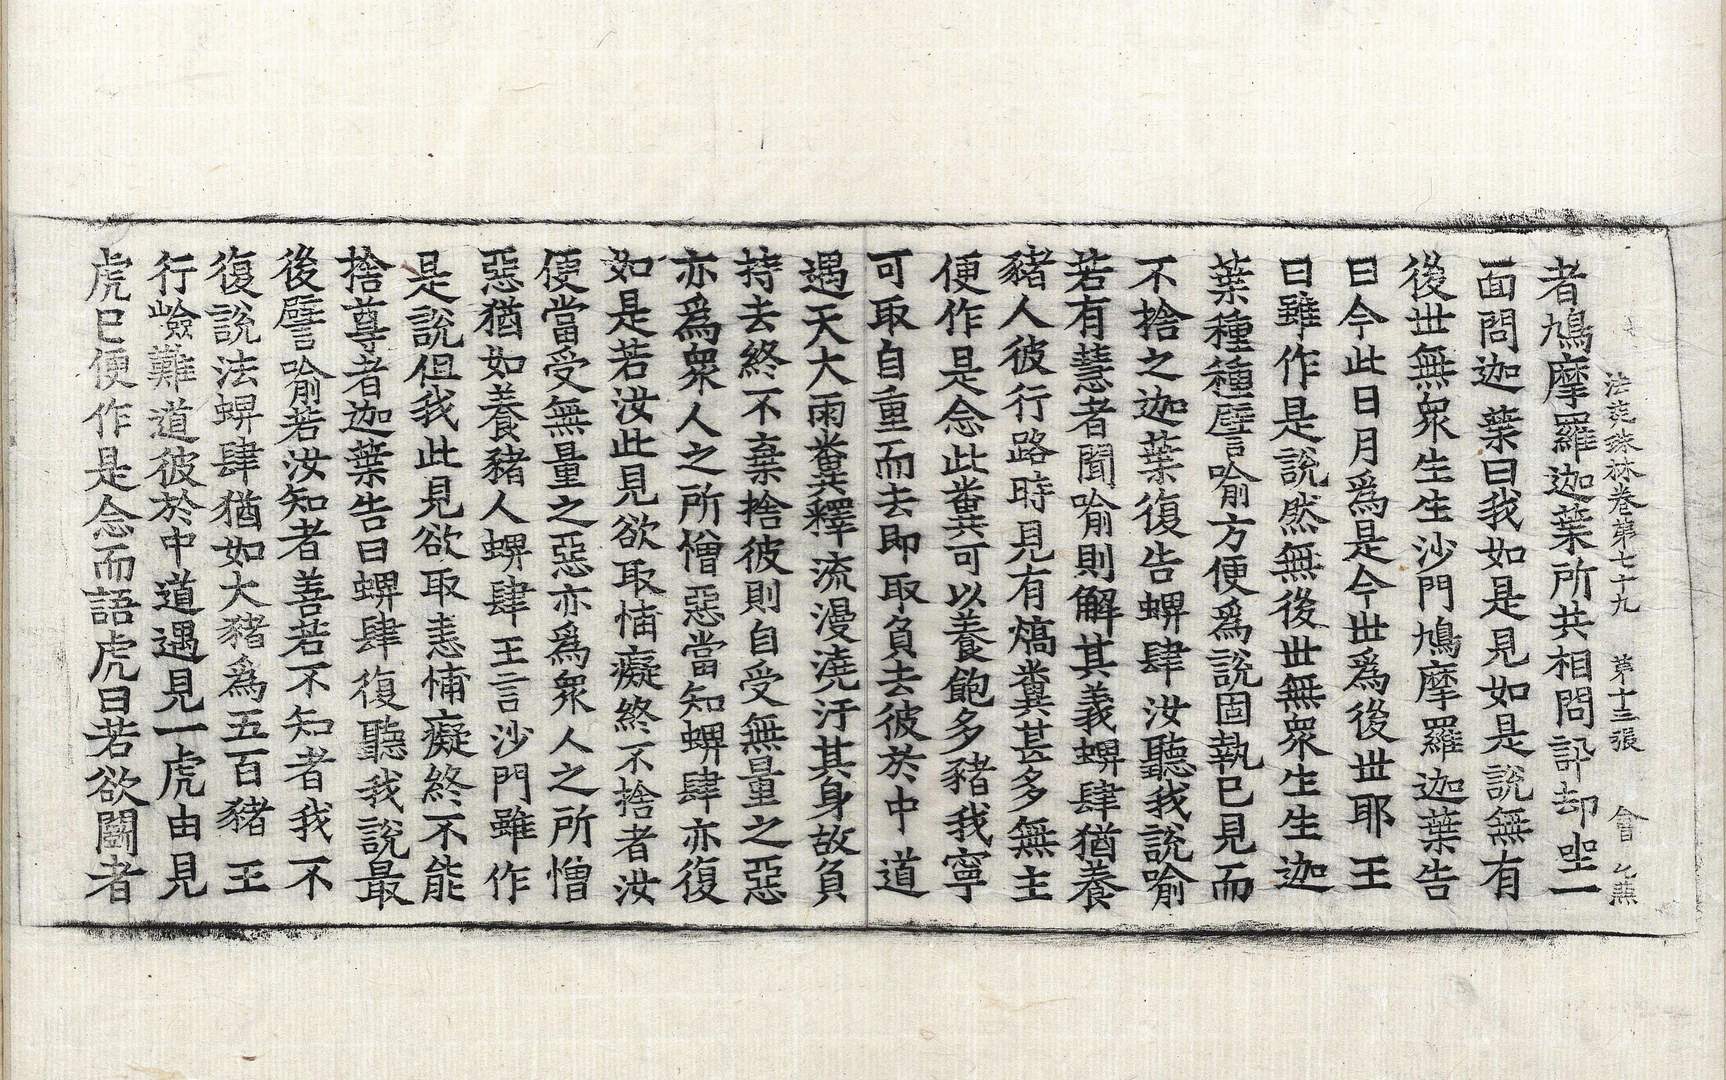 法苑珠林卷第七十九　第十三張　會
者鳩摩羅迦葉所共相問訊却坐一
面問迦葉曰我如是見如是說無有
後世無衆生生沙門鳩摩羅迦葉告
曰今此日月爲是今世爲後世耶王
曰雖作是說然無後世無衆生生迦
葉種種譬喻方便爲說固執已見而
不捨之迦葉復告蜱肆汝聽我說喻
若有慧者聞喻則解其義蜱肆猶養
豬人彼行路時見有熇糞甚多無主
便作是念此糞可以養飽多豬我寧
可取自重而去即取負去彼於中道
遇天大雨糞釋流漫澆汙其身故負
持去終不棄捨彼則自受無量之惡
亦爲衆人之所憎惡當知蜱肆亦復
如是若汝此見欲取恚怖癡終不捨者汝
便當受無量之惡亦爲衆人之所憎
惡猶如養豬人蜱肆王言沙門雖作
是說但我此見欲取恚怖癡終不能
捨尊者迦葉告曰蜱肆復聽我說最
後譬喻若汝知者善若不知者我不
復說法蜱肆猶如大豬爲五百豬王
行嶮難道彼於中道遇見一虎由見
虎已便作是念而語虎曰若欲鬪者